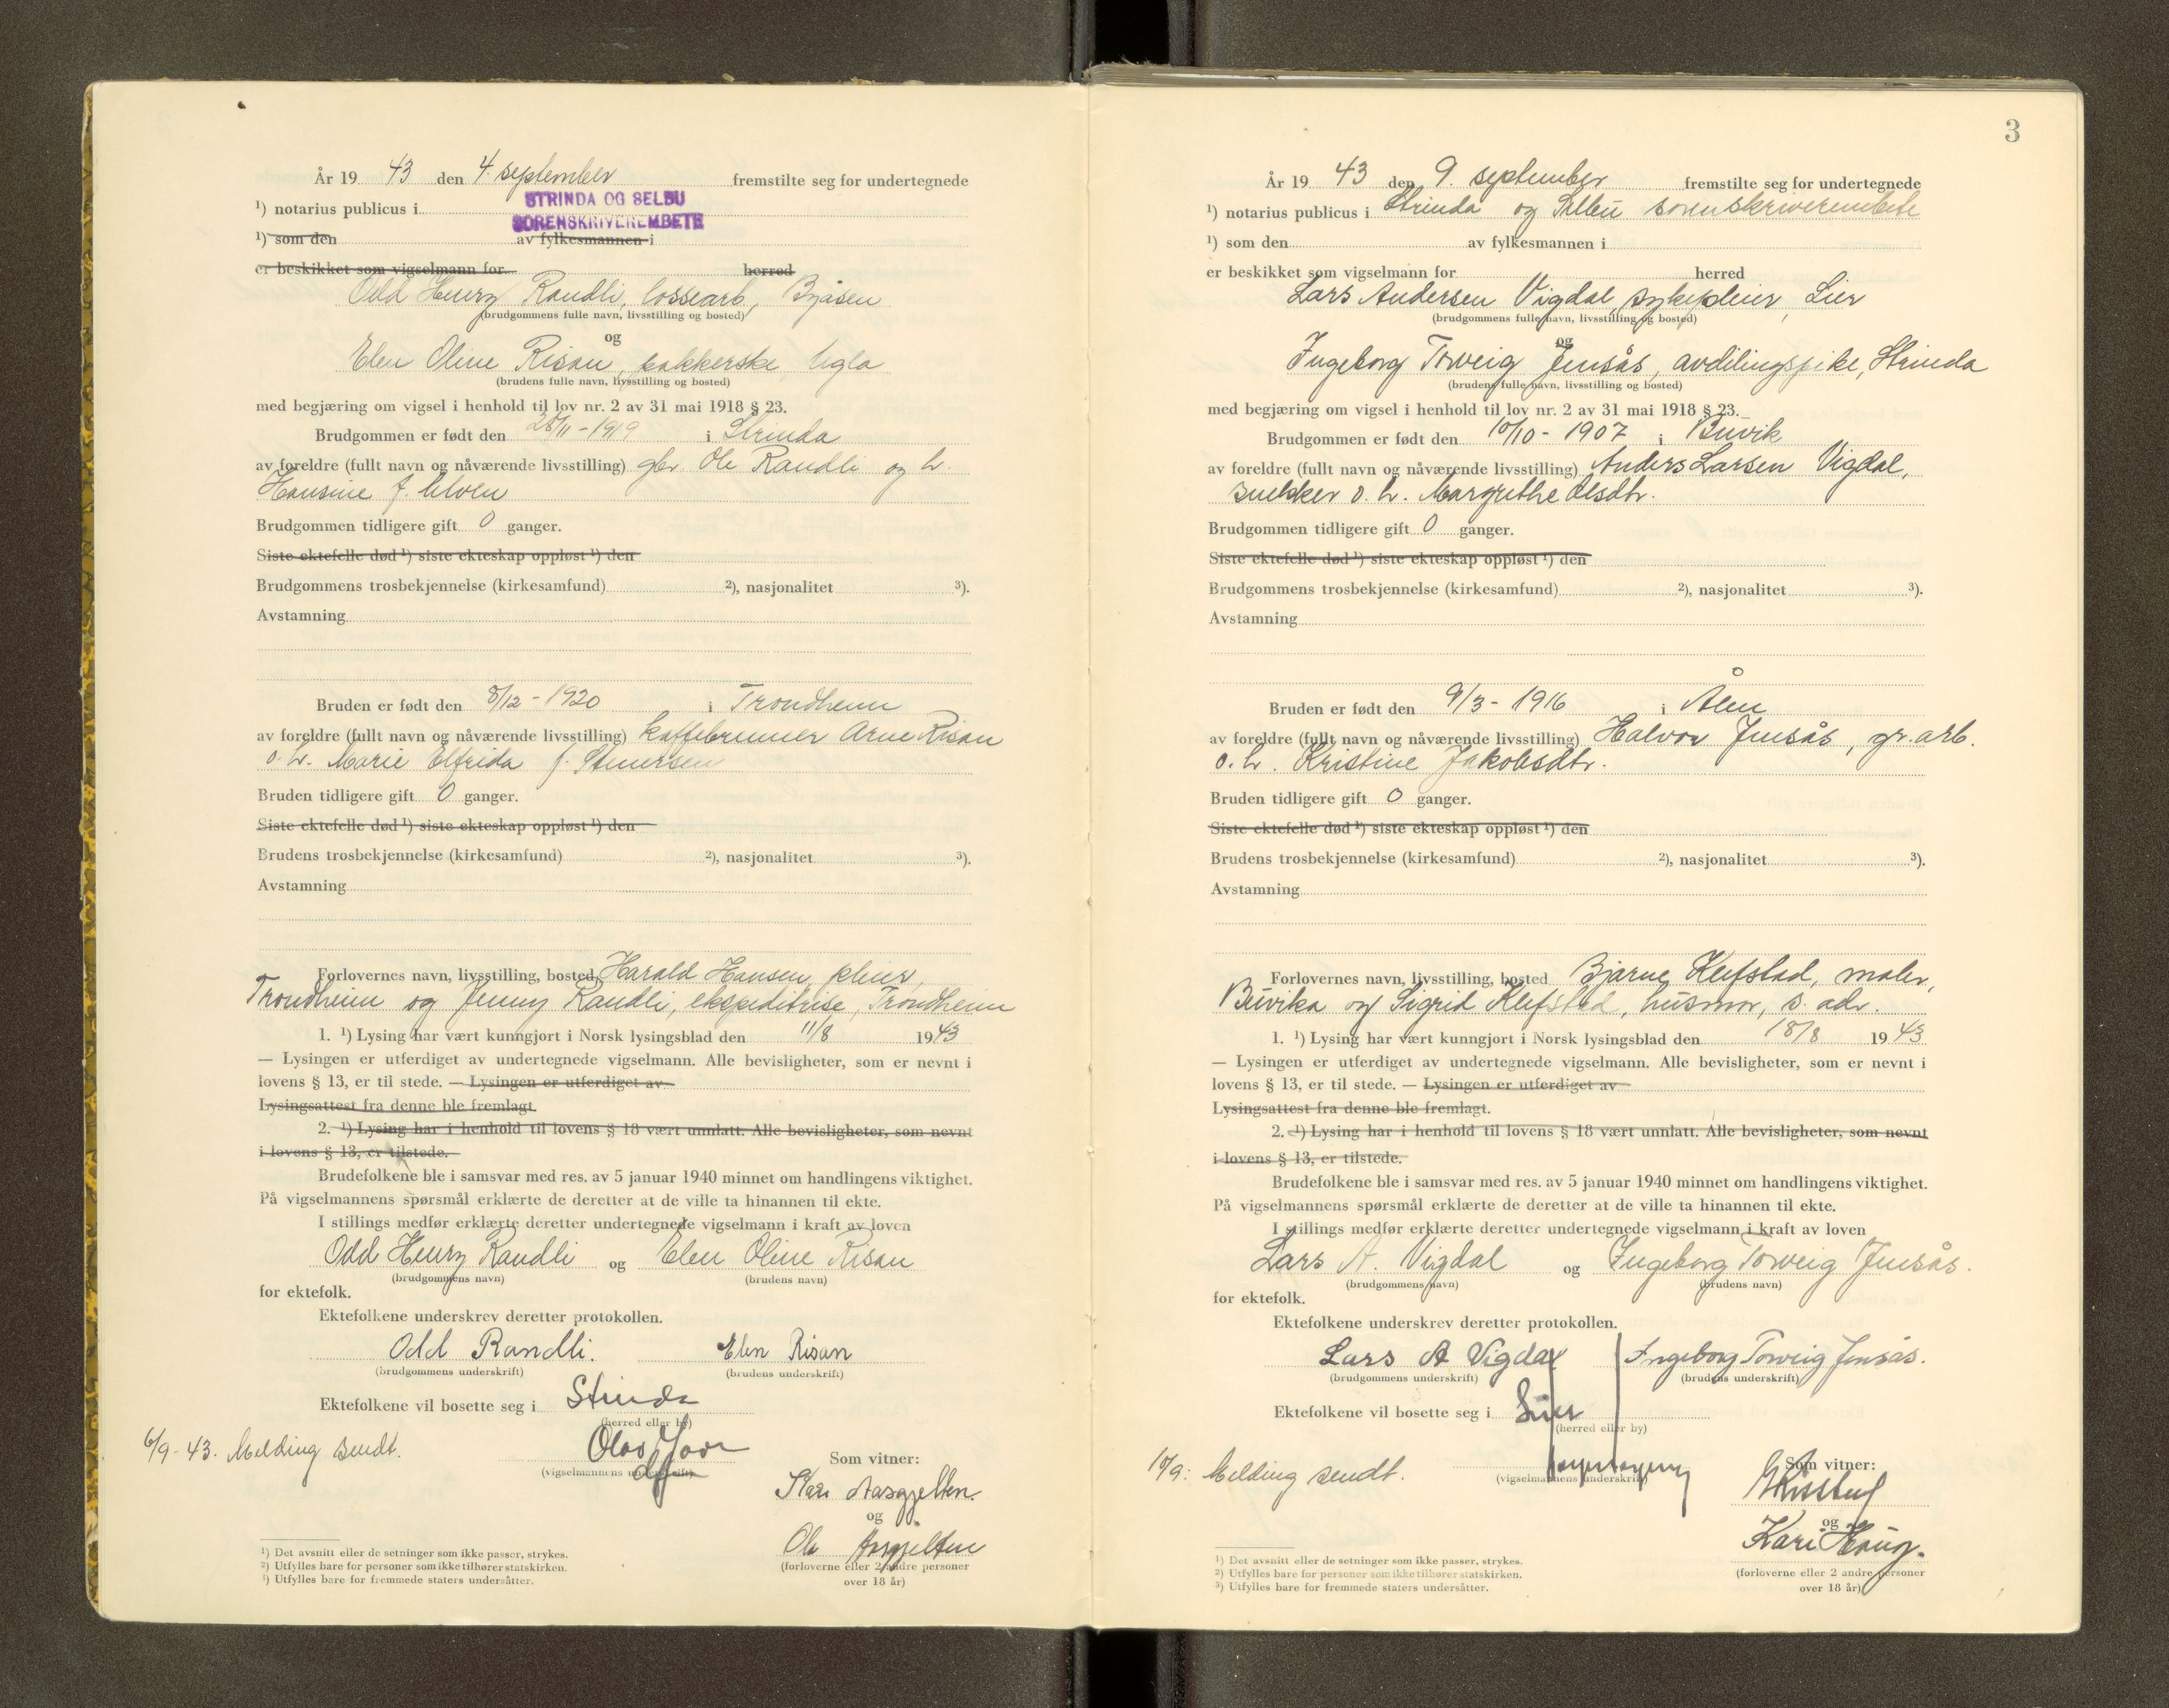 År 19 43 den 4. september fremstilte seg for undertegnede
STRINDA OG SELBU
¹) notarius publicus i
SORENSKRIVEREMBETE
¹) som den av fylkesmannen i
er beskikket som vigselmann for herred
Odd Henry Randli, lossearb., Byåsen
(brudgommens fulle navn, livsstilling og bosted)
og
Elen Oline Risan, pakkerske, Ugla
(brudens fulle navn, livsstilling og bosted)
med begjæring om vigsel i henhold til lov nr. 2 av 31 mai 1918 § 23.
Brudgommen er født den 28/11-1919 i Strinda
av foreldre (fullt navn og nåværende livsstilling) gbr. Ole Randli og h.
Hansine f. Ulven
Brudgommen tidligere gift 0 ganger.
Siste ektefelle død ¹) siste ekteskap oppløst ¹) den
Brudgommens trosbekjennelse (kirkesamfund) ²), nasjonalitet ³).
Avstamning
Bruden er født den 8/12-1920 i Trondheim
av foreldre (fullt navn og nåværende livsstilling) kaffebrenner Arne Risan
o. h. Marie Elfrida f. Steuersen
Bruden tidligere gift 0 ganger.
Siste ektefelle død ¹) siste ekteskap oppløst ¹) den
Brudens trosbekjennelse (kirkesamfund) ²), nasjonalitet ³).
Avstamning
Forlovernes navn, livsstilling, bosted Harald Hansen, pleier,
Trondheim og Jenny Randli, ekspeditrise, Trondheim
1. ¹) Lysing har vært kunngjort i Norsk lysingsblad den 11/8 1943
— Lysingen er utferdiget av undertegnede vigselmann. Alle bevisligheter, som er nevnt i
lovens § 13, er til stede. — Lysingen er utferdiget av
Lysingsattest fra denne ble fremlagt.
2. ¹) Lysing har i henhold til lovens § 18 vært unnlatt. Alle bevisligheter, som nevnt
i lovens § 13, er tilstede.
Brudefolkene ble i samsvar med res. av 5 januar 1940 minnet om handlingens viktighet.
På vigselmannens spørsmål erklærte de deretter at de ville ta hinannen til ekte.
I stillings medfør erklærte deretter undertegnede vigselmann i kraft av loven
Odd Henry Randli og Elen Oline Risan
(brudgommens navn) (brudens navn)
for ektefolk.
Ektefolkene underskrev deretter protokollen.
Odd Randli. Elen Risan
(brudgommens underskrift) (brudens underskrift)
Ektefolkene vil bosette seg i Strinda
(herred eller by)
6/9-43. Melding sendt.
(vigselmannens underskrift)
Som vitner:
Kari Aasgjelten.
og
Ola Aasgjelten
(forloverne eller 2 andre personer
over 18 år)
¹) Det avsnitt eller de setninger som ikke passer, strykes.
²) Utfylles bare for personer som ikke tilhører statskirken.
³) Utfylles bare for fremmede staters undersåtter.
3
År 19 43 den 9. september fremstilte seg for undertegnede
¹) notarius publicus i Strinda og Selbu sorenskriverembete
¹) som den av fylkesmannen i
er beskikket som vigselmann for herred
Lars Andersen Vigdal, sykepleier, Lier
(brudgommens fulle navn, livsstilling og bosted)
og
Ingeborg Torveig Jensås, avdelingspike, Strinda
(brudens fulle navn, livsstilling og bosted)
med begjæring om vigsel i henhold til lov nr. 2 av 31 mai 1918 § 23.
Brudgommen er født den 10/10-1907 i Buvik
av foreldre (fullt navn og nåværende livsstilling) Anders Larsen Vigdal,
snekker o. h. Margrethe Olsdtr.
Brudgommen tidligere gift 0 ganger.
Siste ektefelle død ¹) siste ekteskap oppløst ¹) den
Brudgommens trosbekjennelse (kirkesamfund) ²), nasjonalitet ³).
Avstamning
Bruden er født den 9/3-1916 i Ålen
av foreldre (fullt navn og nåværende livsstilling) Halvor Jensås, gr.arb.
o. h. Kristine Jakobsdtr.
Bruden tidligere gift 0 ganger.
Siste ektefelle død ¹) siste ekteskap oppløst ¹) den
Brudens trosbekjennelse (kirkesamfund) ²), nasjonalitet ³).
Avstamning
Forlovernes navn, livsstilling, bosted Bjarne Klefstad, maler,
Buvika og Sigrid Klefstad, husmor, s. adr.
1. ¹) Lysing har vært kunngjort i Norsk lysingsblad den 18/8 1943
— Lysingen er utferdiget av undertegnede vigselmann. Alle bevisligheter, som er nevnt i
lovens § 13, er til stede. — Lysingen er utferdiget av
Lysingsattest fra denne ble fremlagt.
2. ¹) Lysing har i henhold til lovens § 18 vært unnlatt. Alle bevisligheter, som nevnt
i lovens § 13, er tilstede.
Brudefolkene ble i samsvar med res. av 5 januar 1940 minnet om handlingens viktighet.
På vigselmannens spørsmål erklærte de deretter at de ville ta hinannen til ekte.
I stillings medfør erklærte deretter undertegnede vigselmann i kraft av loven
Lars A. Vigdal og Ingeborg Torveig Jensås.
(brudgommens navn) (brudens navn)
for ektefolk.
Ektefolkene underskrev deretter protokollen.
Lars A Vigdal Ingeborg Torveig Jensås.
(brudgommens underskrift) (brudens underskrift)
Ektefolkene vil bosette seg i Lier
(herred eller by)
10/9: Melding sendt.
(vigselmannens underskrift)
Som vitner:
og
Kari Haug.
(forloverne eller 2 andre personer
over 18 år)
¹) Det avsnitt eller de setninger som ikke passer, strykes.
²) Utfylles bare for personer som ikke tilhører statskirken.
³) Utfylles bare for fremmede staters undersåtter.